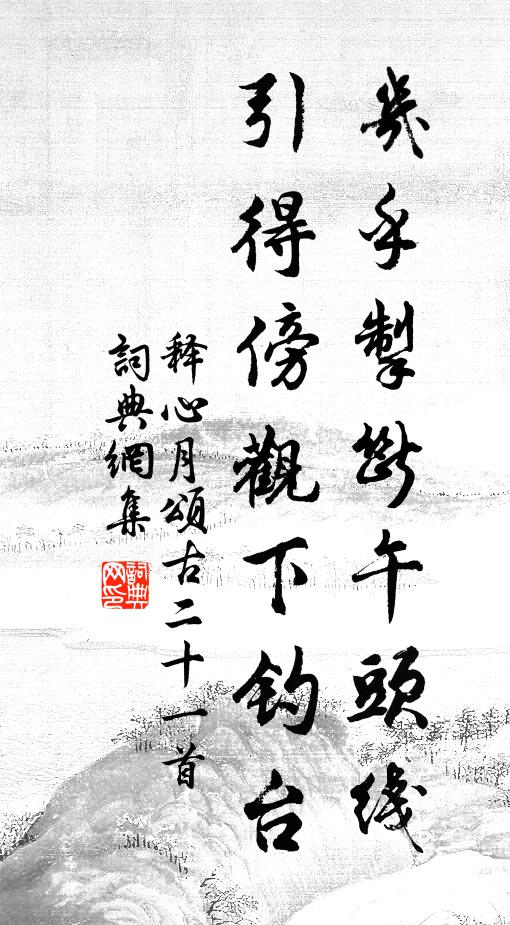 几乎掣断午頭线
引得傍觀下钓台
释心月頌古二十一首
詞典網集
詞典网印